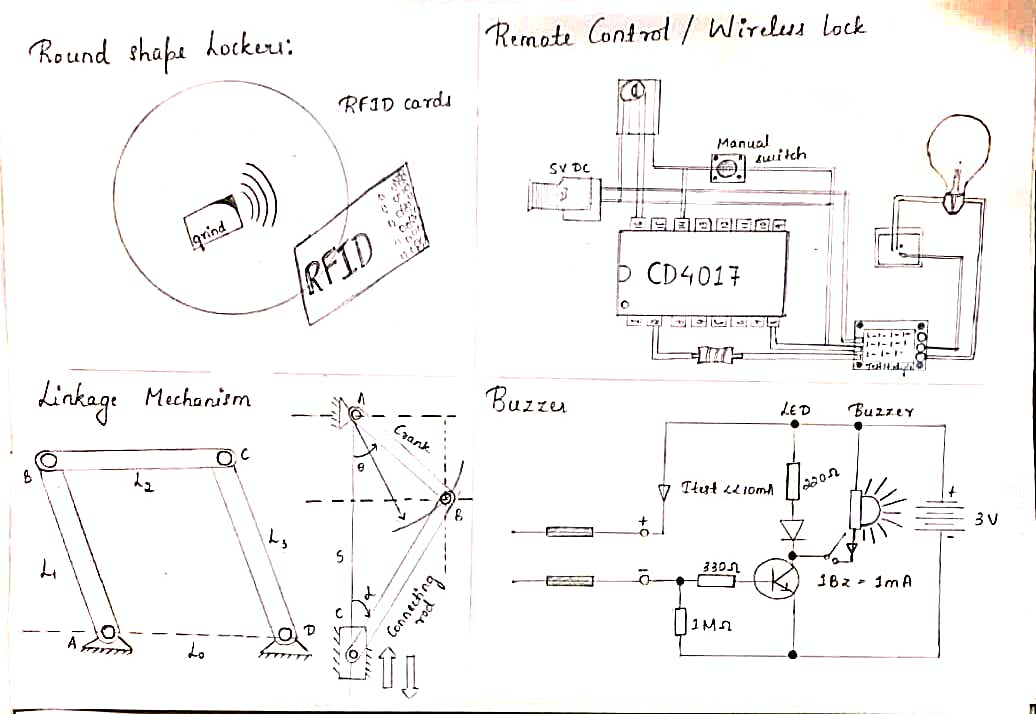 Round shape Lockers:
RFID cards
grind
RFID
Remote Control / Wireless lock
5V DC
Manual
switch
CD4017
Linkage Mechanism
B
C
L2
L1
L3
A
L0
D
A
Crank
θ
B
S
C
α
Connecting
rod
Buzzer
LED
Buzzer
Itest <<10mA
220Ω
+
3V
-
+
-
330Ω
1Bz = 1mA
1MΩ